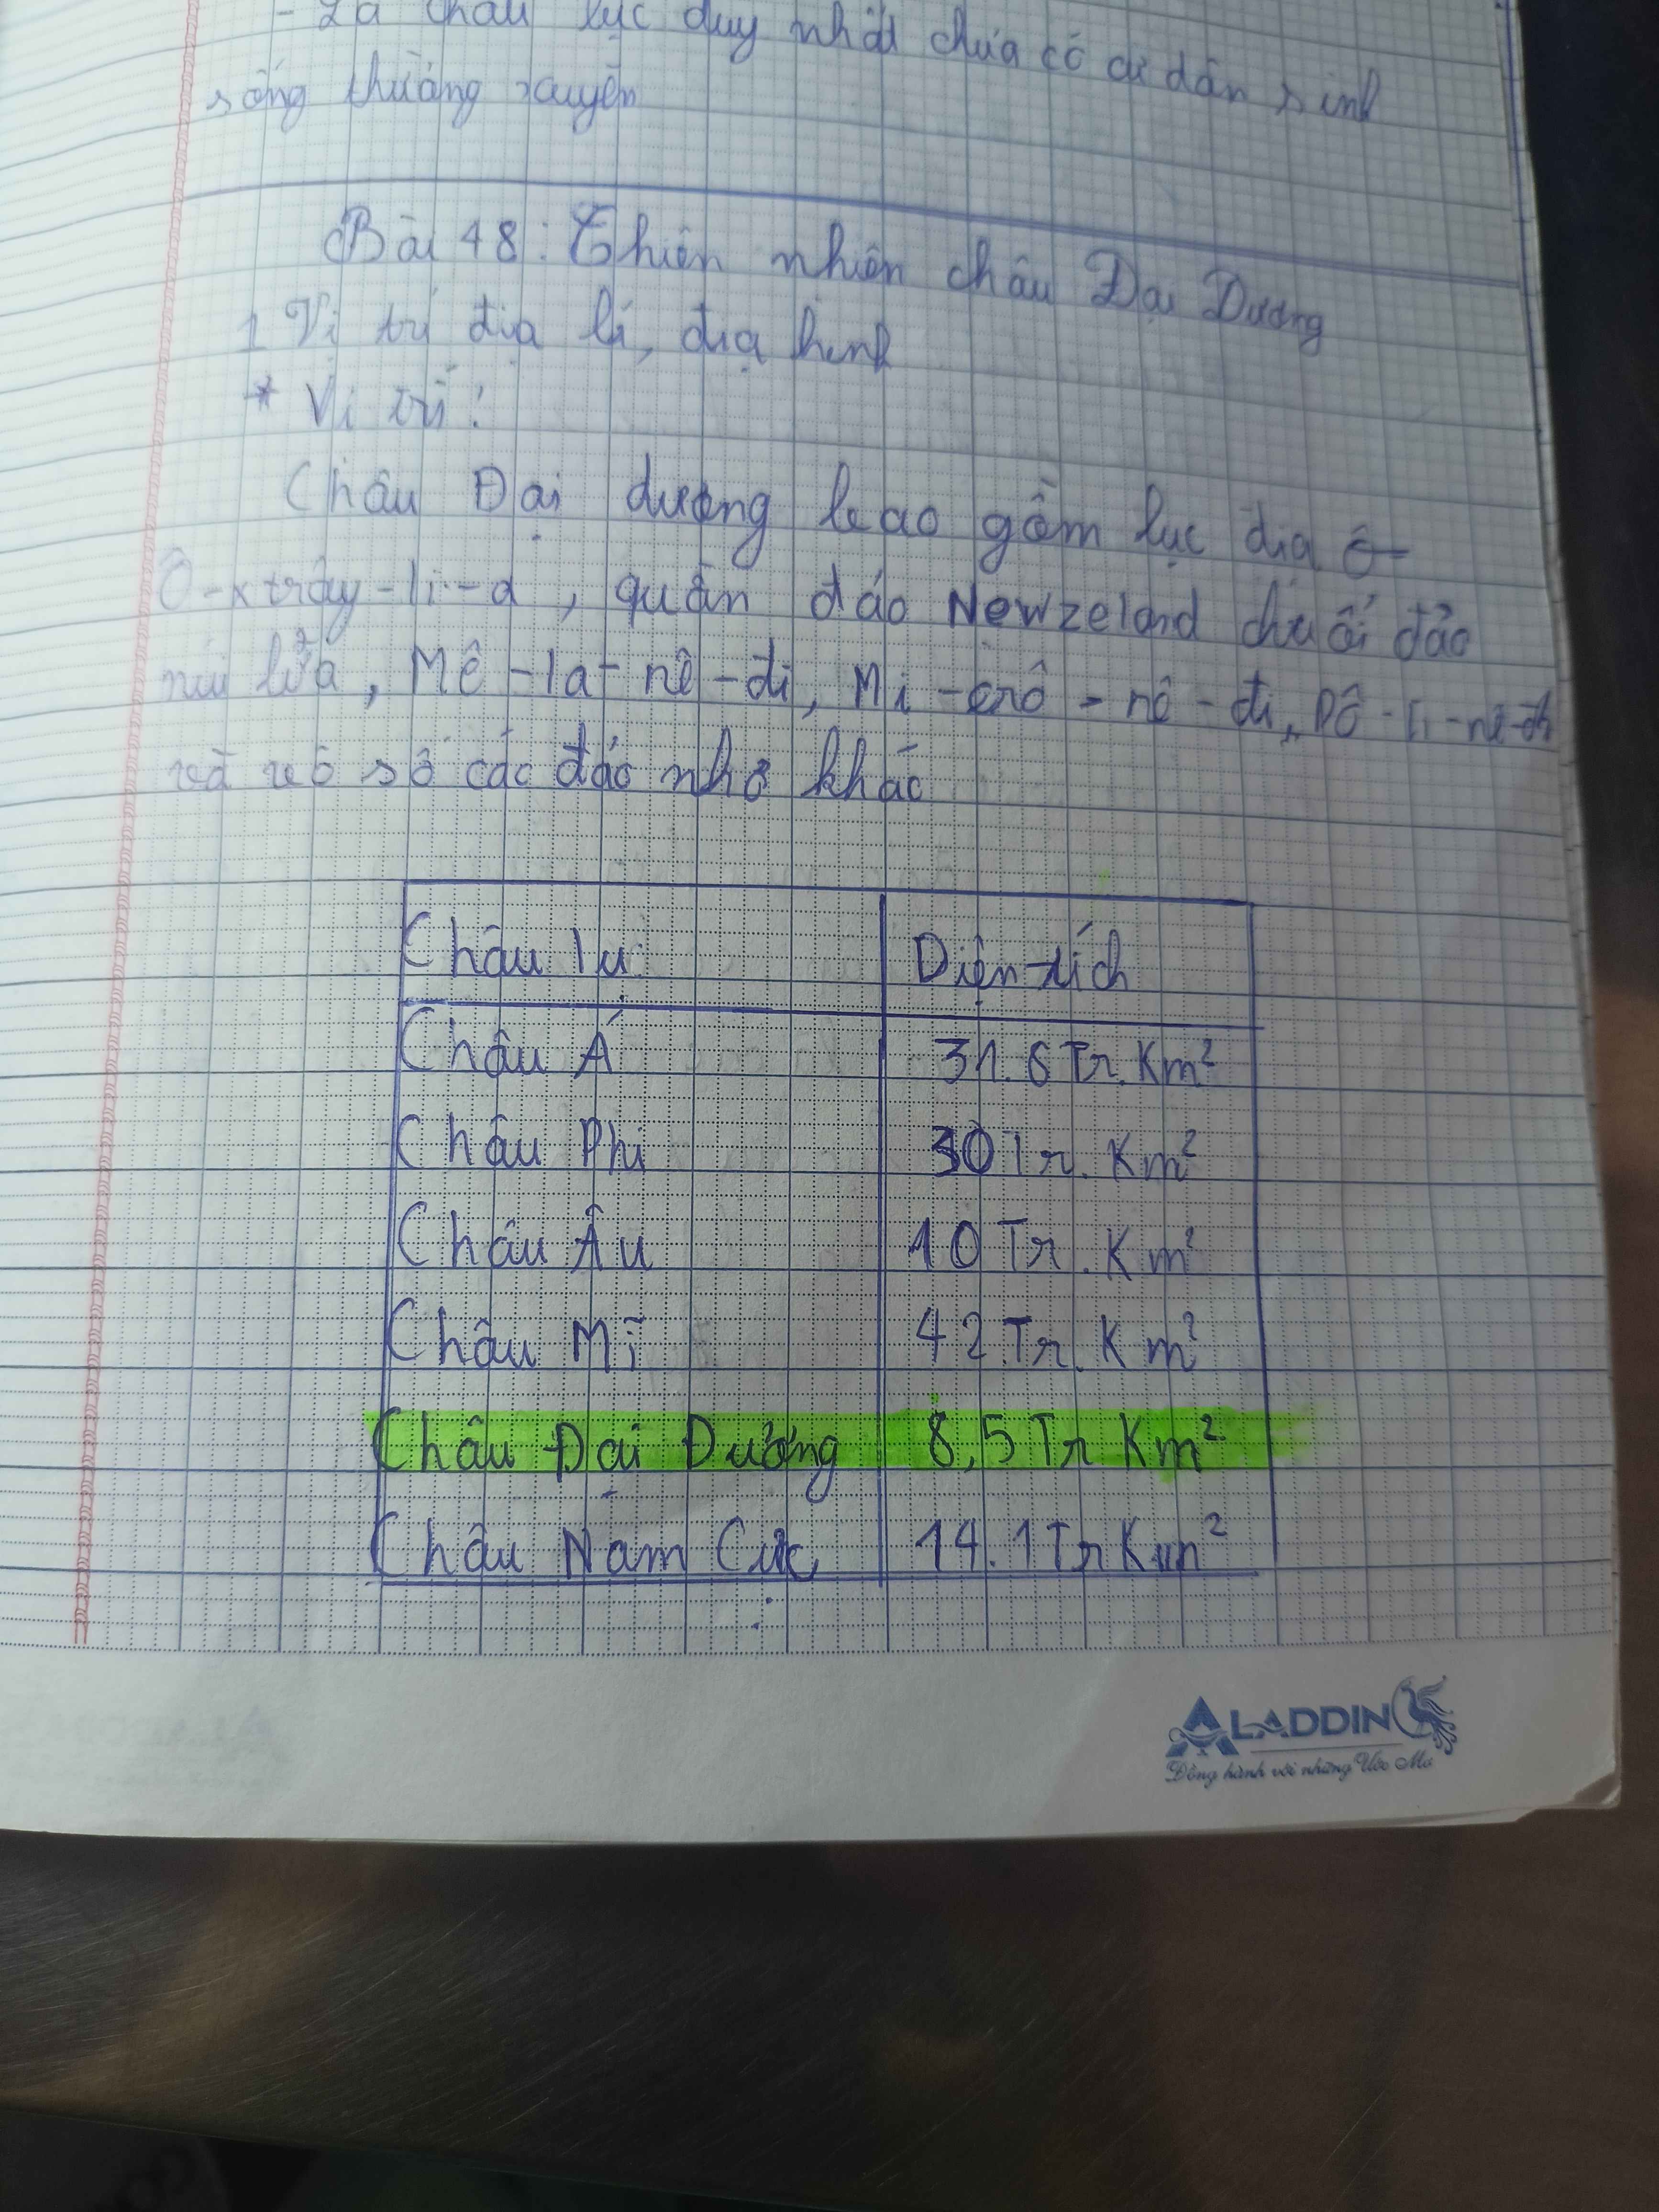 - Là châu lục duy nhất chưa có cư dân sinh
sống thường xuyên
Bài 48: Thiên nhiên châu Đại Dương
1 Vị trí địa lí, địa hình
* Vị trí:
Châu Đại dương bao gồm lục địa ô-
Ô-xtrây-li-a, quần đảo Newzeland chuối đảo
núi lửa, Mê-la-nê-di, Mi-crô-nê-di, Pô-li-nê-di
và vô số các đảo nhỏ khác
Châu lụ Diện tích
Châu Á 31.6 Tr. Km²
Châu Phi 30 Tr. Km²
Châu Âu 10 Tr. Km²
Châu Mĩ 42 Tr. Km²
Châu Đại Dương 8,5 Tr Km²
Châu Nam Cực 14.1 Tr Km²
ALADDIN
Đồng hành với những Ước Mơ